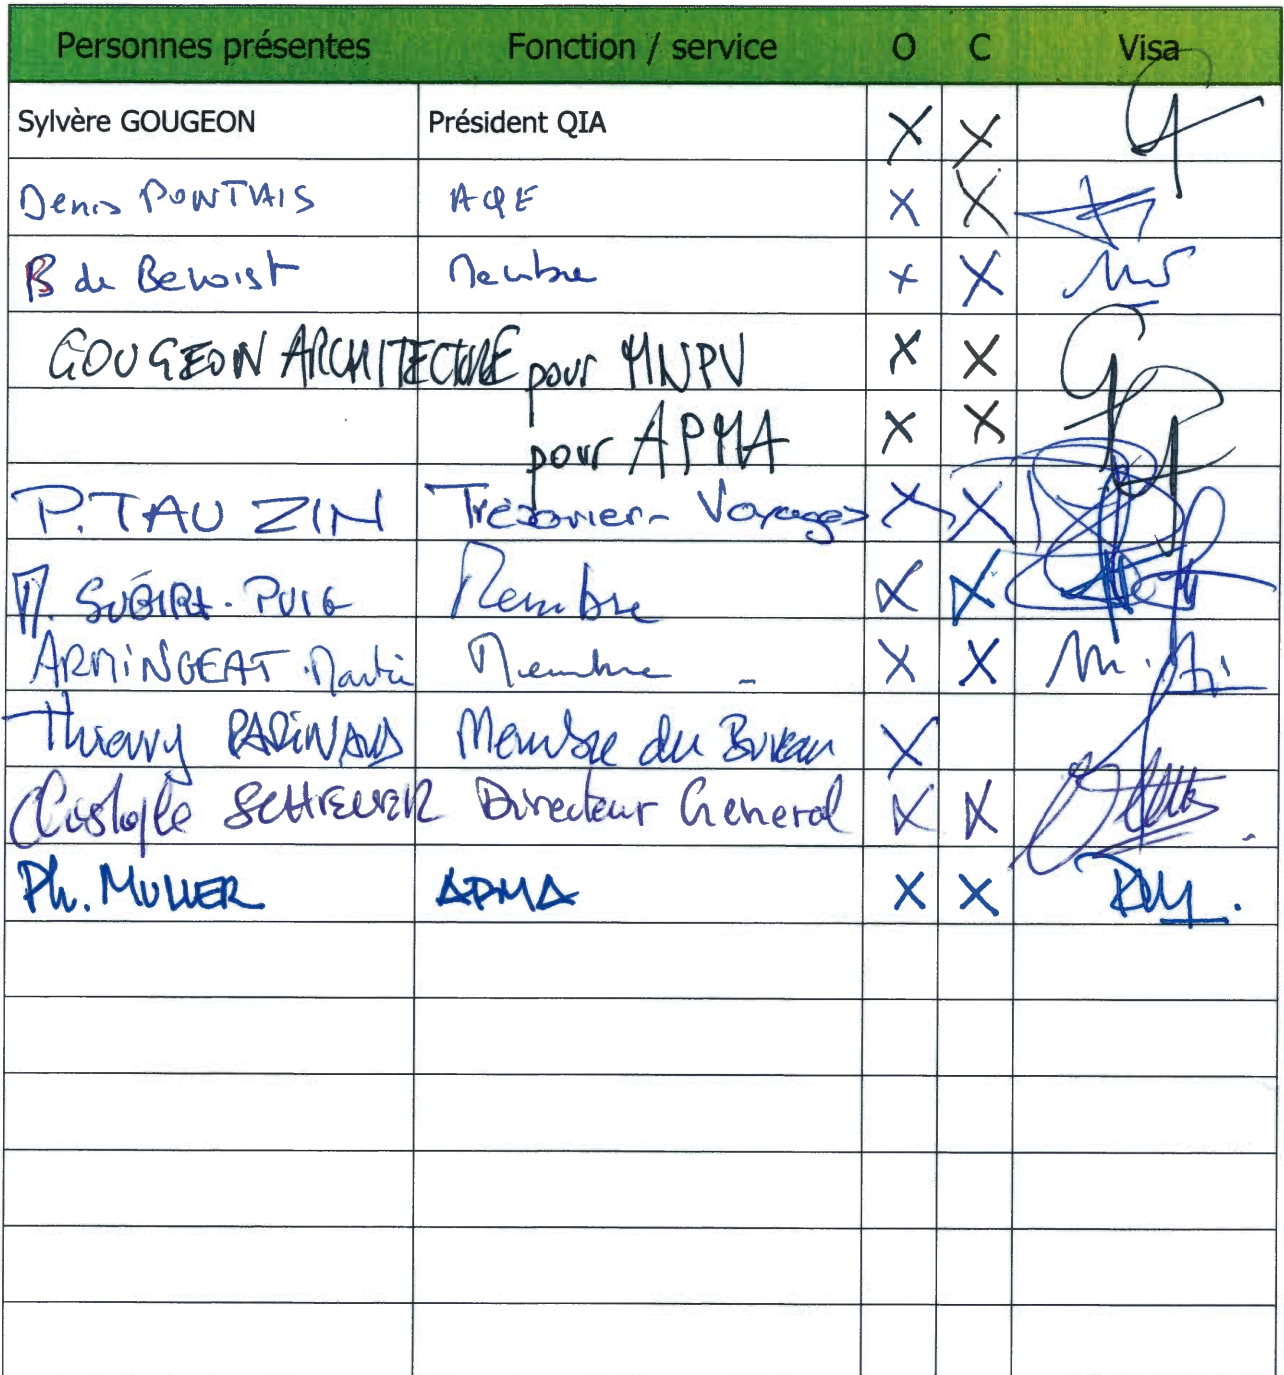 Personnes présentes Fonction / service O C Visa
Sylvère GOUGEON Président QIA X X
Denis PONTHAIS AQE X X
B de Benoist Membre X X
GOUGEON ARCHITECTURE pour MNPV X X
pour APMA X X
P. TAUZIN Trésorier - Voyages X X
M. SUBIRA-PUIG Membre X X
ARMINGEAT Martin Membre - X X
Thierry Membre du Bureau X
Christophe SCHREUER Directeur General X X
Ph. MULLER APMA X X